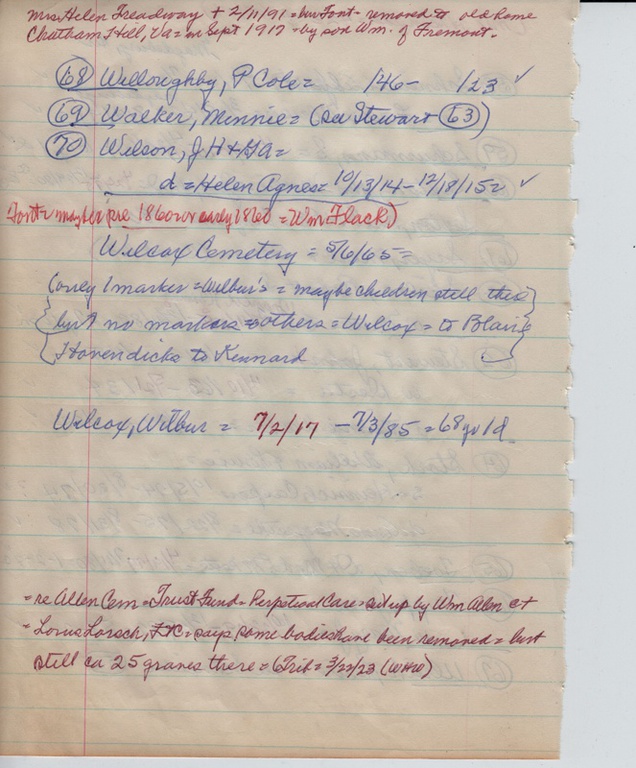 Mrs Helen Treadway + 2/11/91 = bur Font - removed to old home
Chatham Hill, Va = in Sept 1917 = by son Wm. of Fremont.
68 Willoughby, P Cole = /46 - /23 ✓
69 Walker, Minnie = (see Stewart 63)
70 Wilson, J H + Ga =
d = Helen Agnes = 10/13/14 - 12/18/15 = ✓
Font = maybe pre 1860 or early 1860 = Wm Flack)
Wilcox Cemetery = 5/6/65 =
(only 1 marker = Wilbur's = maybe children still there
but no markers = others = Wilcox = to Blair
Hovendicks to Kennard
Wilcox, Wilbur = 7/2/17 - 7/3/85 = 68 yr old
= re Allen Cem = Trust Fund = Perpetual Care = set up by Wm Allen et
= Lorus Lorsch, = says some bodies have been removed = but
still ca 25 graves there = (Trib = 3/22/23 (WHW)